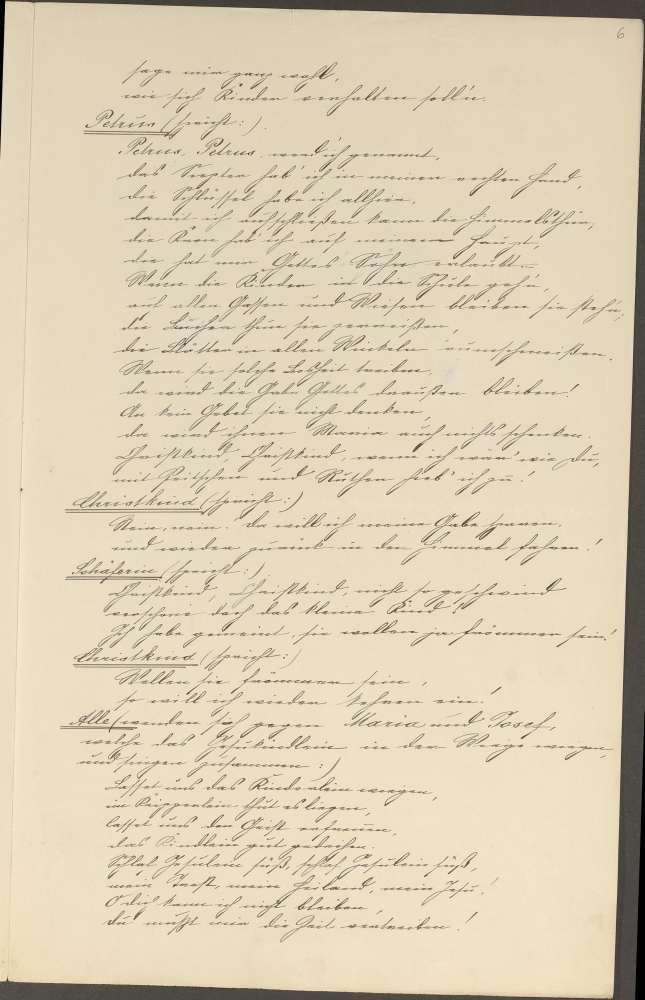 6
sage mir ganz wohl,
wie sich Kinder verhalten soll'n.
Petrus (spricht:).
Petrus, Petrus, werd' ich genannt,
das Szepter hab' ich in meiner rechten Hand,
die Schlüssel habe ich allhier,
damit ich aufschließen kann die Himmelsthür,
die Kron hab' ich auf meinem Haupt,
die hat mir Gottes Sohn erlaubt.–
Wenn die Kinder in die Schule geh'n,
auf allen Gassen und Wiesen bleiben sie steh'n,
die Bücher thun sie zerreißen,
die Blätter in allen Winkeln rumschmeißen.
Wenn sie solche Bosheit treiben,
da wird die Gabe Gottes draußen bleiben!
An kein Gebet sie nicht denken,
da wird ihnen Maria auch nichts schenken.
Christkind, Christkind, wenn ich wär' wie Du,
mit Peitschen und Ruthen hieb' ich zu!
Christkind (spricht:)
Nein, nein! da will ich meine Gabe sparen,
und wieder zurück in den Himmel fahren!
Schäferin (spricht:),
Christkind, Christkind, nicht so geschwind
verschone doch das kleine Kind!
Ich habe gemeint, sie wollen ja frömmer sein!
Christkind (spricht:)
Wollen sie frömmer sein,
so will ich wieder kehren ein!
Alle (wenden sich gegen Maria und Josef,
welche das Jesukindlein in der Wiege wiegen,
und singen zusammen:)
Lasset uns das Kindelein wiegen,
im Krippelein thut es liegen,
lasset uns den Geist erfreuen,
das Kindlein gut gedeihen.
Schlaf Jesulein süß, schlaf Jesulein süß,
mein Trost, mein Heiland, mein Jesu!
O dich kann ich nicht bleiben,
du mußt mir die Zeit vertreiben!